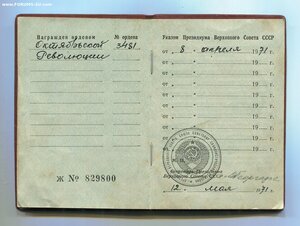 www.FORUMS-SU.com
Награжден орденом № ордена
Октябрьской 3481
Революции
Ж № 829800
Указом Президиума Верховного Совета СССР
от " 8 " апреля 1971 г.
от " " 19 г.
от " " 19 г.
от " " 19 г.
от " " 19 г.
от " " 19 г.
от " " 19 г.
от " " 19
от " " 19
Секретарь Президиума
Верховного Совета СССР
" 12 " мая 1971 г.